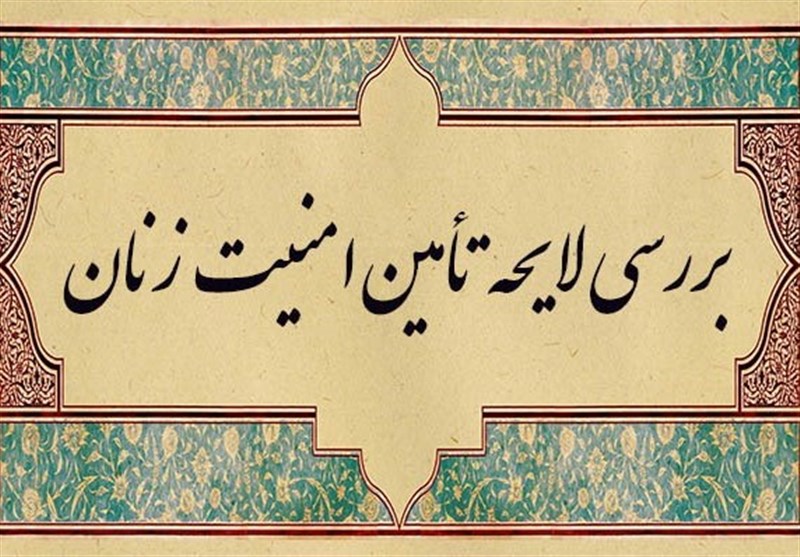 بررسی لایحه تأمین امنیت زنان